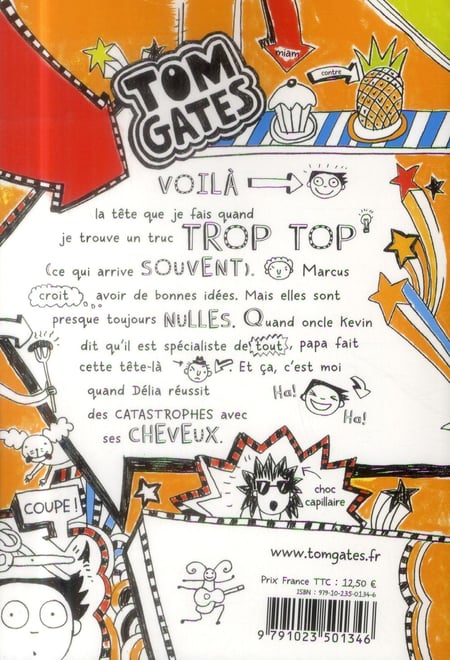 miam
contre
TOM
GATES
VOILÀ
la tête que je fais quand
je trouve un truc TROP TOP
(ce qui arrive SOUVENT). Marcus
croit avoir de bonnes idées. Mais elles sont
presque toujours NULLES. Quand oncle Kevin
dit qu'il est spécialiste de tout, papa fait
cette tête-là . Et ça, c'est moi
quand Délia réussit
des CATASTROPHES avec
ses CHEVEUX.
Ha!
Ha!
choc
capillaire
COUPE!
www.tomgates.fr
Prix France TTC : 12,50 €
ISBN : 979-10-235-0134-6
9 791023 501346